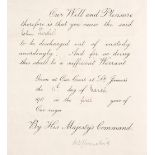 Our Will and Pleasure
therefore is that you cause the said
to be discharged out of custody
accordingly. And for so doing
this shall be a sufficient Warrant
Given at Our Court at St. James's
the day of March
in the first year of
Our reign
By His Majesty's Command